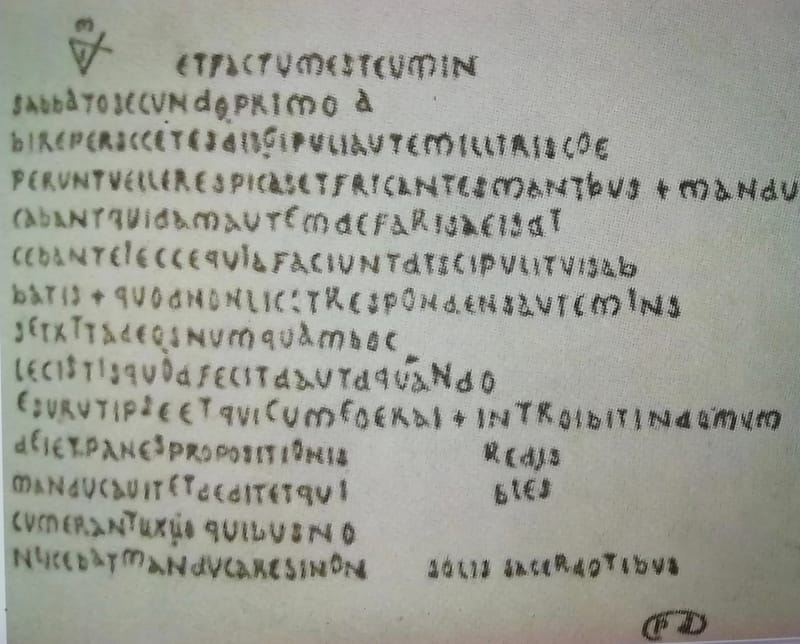 ETFACTUMESTEUMIN
SABBATOSECUNdOPRIMO À
bIREPERSCCETESdISGIPULIAUTEMILLITRISCOE
PERUNTVELLERESPICASETFRICANTESMANTbUS + MANdU
CABANTQUIdAMAUTEMdEFARISAEISdT
CEBANTEIECCEQUIAFACIUNTdISCIPULITUISAb
bATIS + QUOdNONLICETRESPONdENSAUTEMINS
SETXTTAdEOSNUMQUAMbOC
LECISTISQUOdFECITdAUTdQUANdO
ESURUTIPSEETQUICUMFOERAI + INTROIbITINdOMUM
dEIETPANESPROPOSITIONIS REdIS
MANdUCAUITETdEdITETQUI bLES
CUMERANTUXUO QUIbUSNO
NLICEbATMANdUCARESINON SOLIS SACERdOTIbUS